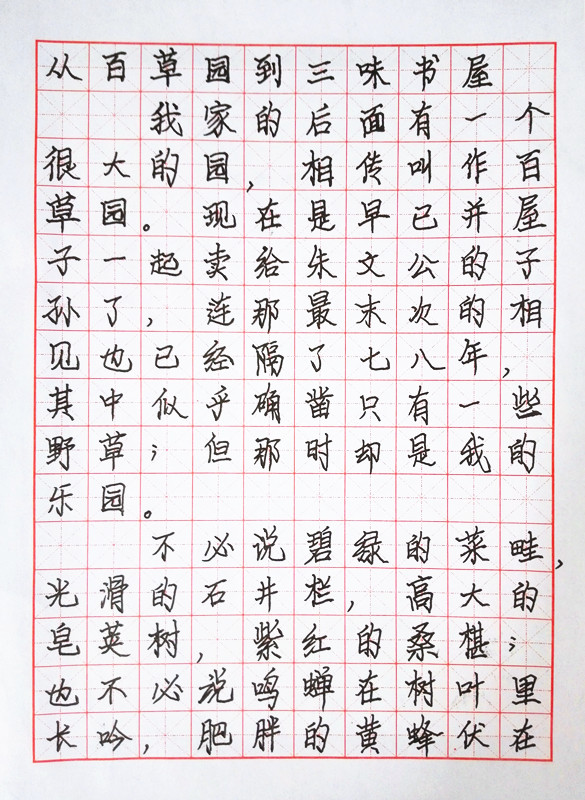 从百草园到三味书屋
我家的后面有一个
很大的园,相传叫作百
草园。现在是早已并屋
子一起卖给朱文公的子
孙了,连那最末次的相
见也已经隔了七八年,
其中似乎确凿只有一些
野草;但那时却是我的
乐园。
不必说碧绿的菜畦,
光滑的石井栏,高大的
皂荚树,紫红的桑椹;
也不必说鸣蝉在树叶里
长吟,肥胖的黄蜂伏在